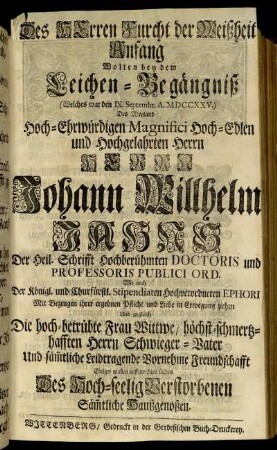 Des HErren Furcht der Weißheit
Anfang
Wolten bey dem
Leichen-Begängniß
(Welches war den IX. Septembr. A. MDCCXXV.)
Des Weyland
Hoch-Ehrwürdigen Magnifici Hoch-Edlen
und Hochgelahrten Herrn
HERRN
Johann Willhelm
JAHNS
Der Heil. Schrifft Hochberühmten DOCTORIS und
PROFESSORIS PUBLICI ORD.
Wie auch
Der Königl. und Churfürstl. Stipendiaten Hochverordneten EPHORI
Mit Bezeugung ihrer ergebnen Pflicht und Liebe in Erwegung ziehen
Und zugleich
Die hoch-betrübte Frau Wittwe, höchst-schmertz-
hafften Herrn Schwieger-Vater
Und sämtliche Leidtragende Vornehme Freundschafft
Einiger massen auffzurichten suchen
Des Hoch-seelig Verstorbenen
Sämtliche Haußgenoßen.
WITTENBERG, Gedruckt in der Gerdesischen Buch-Druckerey.